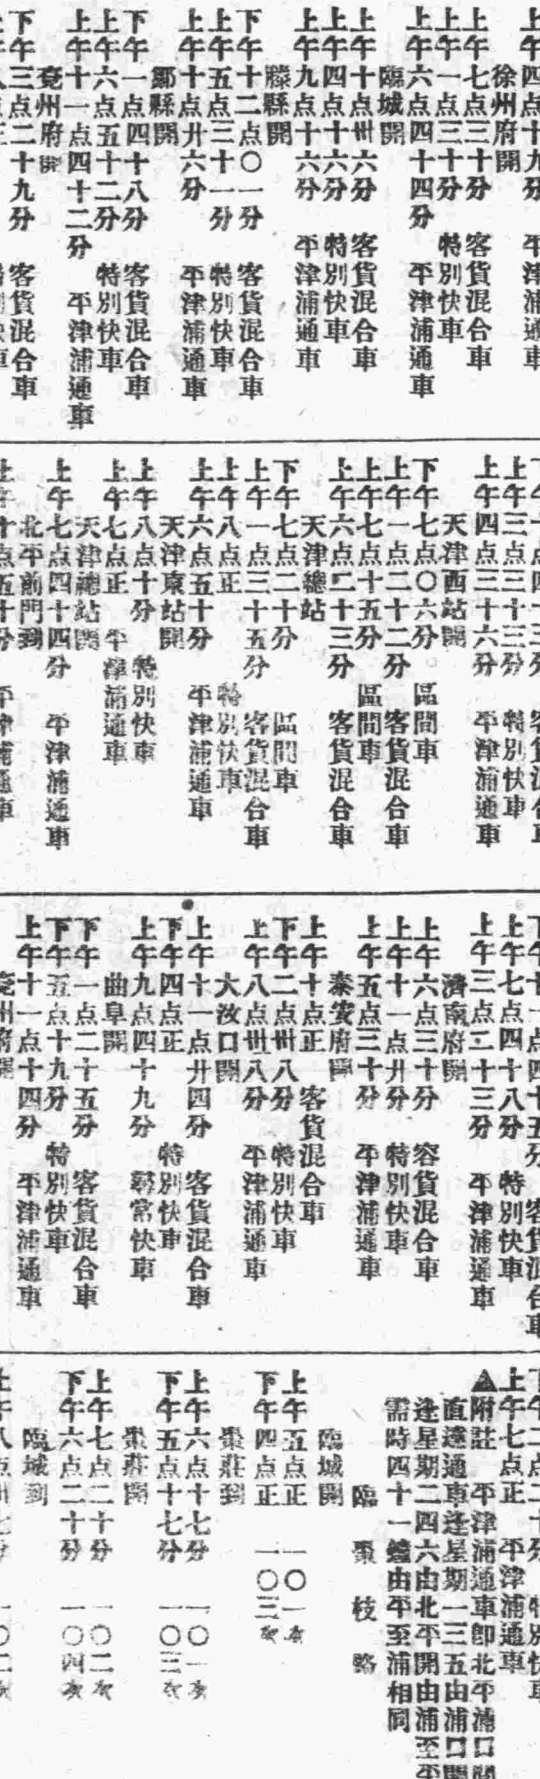 上午四点十九分　平津浦通車
徐州府開
上午七点三十分　客貨混合車
上午一点三十分　特別快車
上午六点四十四分　平津浦通車
臨城開
上午十点卅六分　客貨混合車
上午四点十六分　特別快車
上午九点十六分　平津浦通車
滕縣開
下午十二点〇一分　客貨混合車
上午五点三十一分　特別快車
上午十点廿六分　平津浦通車
鄒縣開
下午一点四十八分　客貨混合車
上午六点五十二分　特別快車
上午十一点四十二分　平津浦通車
兗州府開
下午三点二十九分　客貨混合車
上午三点三十三分　特別快車
上午四点三十六分　平津浦通車
天津西站開
下午七点〇六分　區間車
上午一点二十二分　客貨混合車
上午七点十五分　區間車
上午六点二十三分　客貨混合車
天津總站
下午七点二十分　區間車
上午一点三十五分　客貨混合車
上午八点正　特別快車
上午六点五十分　平津浦通車
天津東站開
上午八点十分　特別快車
上午七点正　平津浦通車
天津總站開
上午七点四十四分　平津浦通車
北平前門到
上午十点五十分　平津浦通車
上午七点四十八分　特別快車
上午三点二十三分　平津浦通車
濟南府開
上午六点三十分　容貨混合車
上午十一点廿分　特別快車
上午五点三十分　平津浦通車
泰安府開
上午十点正　客貨混合車
下午二点卅八分　特別快車
上午八点卅八分　平津浦通車
大汶口開
上午十一点廿四分　客貨混合車
下午四点正　特別快車
上午九点四十九分　尋常快車
曲阜開
下午一点二十五分　客貨混合車
下午五点十九分　特別快車
上午十一点十四分　平津浦通車
兗州府開
上午七点正　平津浦通車
▲附註　平津浦通車卽北平浦口間
直達通車逢星期一三五由浦口開
逢星期二四六由北平開由浦至平
需時四十一鐘由平至浦相同
臨棗枝路
臨城開
上午五点正　一〇一次
下午四点正　一〇三次
棗莊到
上午六点十七分　一〇一次
下午五点十七分　一〇三次
棗莊開
上午七点二十分　一〇二次
下午六点二十分　一〇四次
臨城到
上午八点卅七分　一〇二次